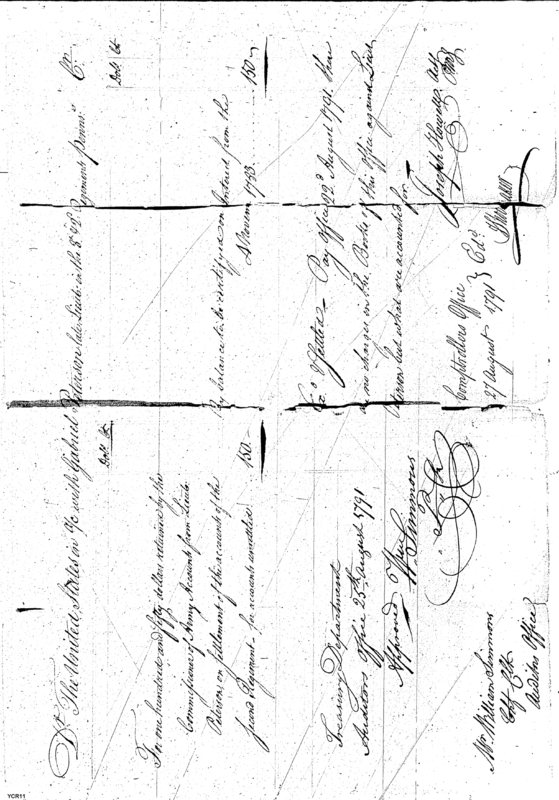 Dr. The United States in a/c with Gabriel Peterson late Lieut. in the 8th Regiment Pennsa. Cr.
Dolls. Cts
Dolls. Cts
To one hundred and fifty dollars retained by the
Commissioner of Army Accounts from Lieut.
Peterson on settlement of the accounts of the
second Regiment for accounts unsettled
150.-
By balance to be certified on interest from the
150.-
Treasury Department
Auditors Office 25th August 1791
Approved Wm. Simmons
Mr. William Simmons
Chf. Clk
Auditors Office
Pay Office 22d. August 1791. there
are no charges on the Books of this Office against Lieut
Peterson but what are accounted for
Joseph Howell
Comptrollers Office
27 August 1791
YCR11